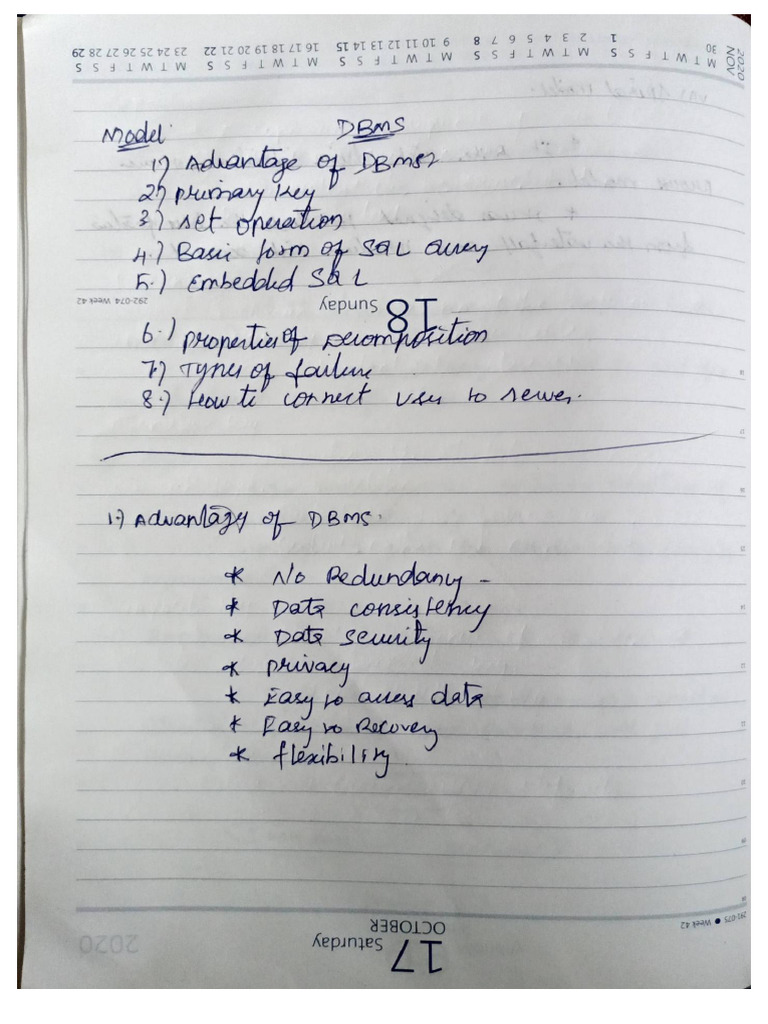 Model
DBMS
1) Advantage of DBMS?
2) primary key
3) set operation
4.) Basic form of SQL Query
5.) Embedded SQL
292-074 Week 42
18 Sunday
6.) properties of Decomposition
7) Types of failure
8.) How to connect user to server.
1.) Advantagy of DBMS.
* No Redundancy -
* Data consistency
* Data security
* privacy
* Easy to access data
* Easy to Recovery
* flexibility
17 Saturday
OCTOBER
2020
291-075 ● Week 42
2020
NOV
M T W T F S S M T W T F S S M T W T F S S M T W T F S S M T W T F S S
30 1 2 3 4 5 6 7 8 9 10 11 12 13 14 15 16 17 18 19 20 21 22 23 24 25 26 27 28 29